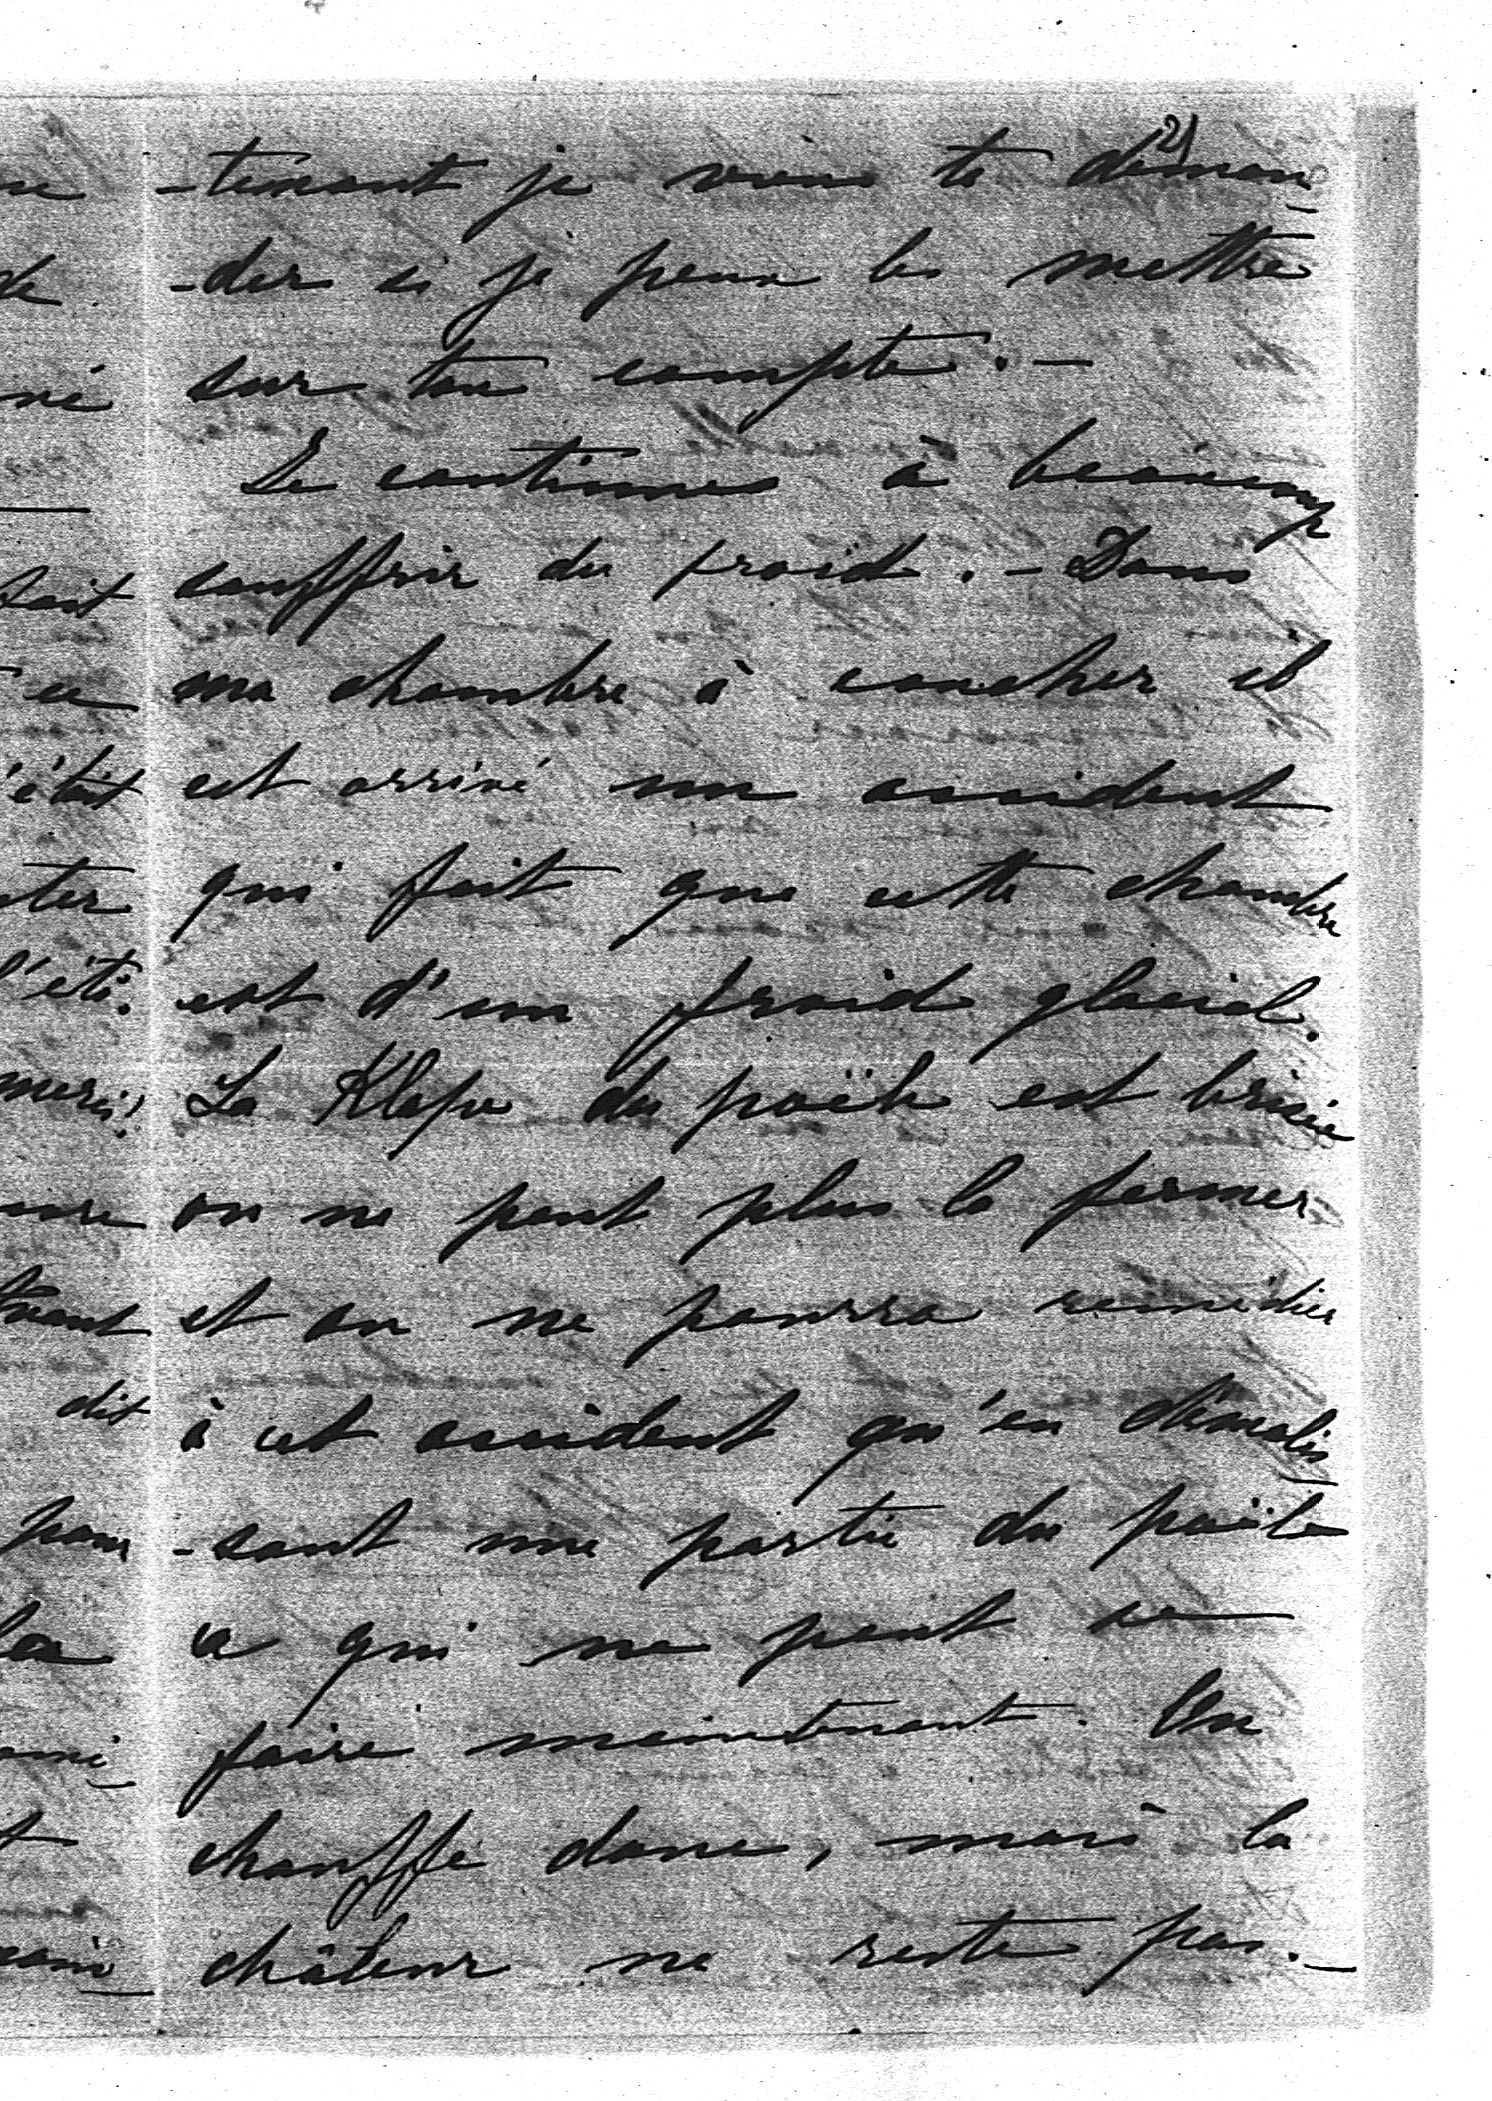 2)
-tenant je viens te deman-
-der si je peux les mettre
sur ton compte. -
Je continues à beaucoup
souffrir du froid. - Dans
ma chambre à coucher il
est arrivé un accident
qui fait que cette chambre
est d'un froid glacial.
La Klape du poële est brisée
on ne peut plus la fermer
et on ne pourra remédier
à cet accident qu'en démolis-
-sant une partie du poële
ce qui ne peut se
faire maintenant. On
chauffe donc, mais la
châleur ne reste pas. -